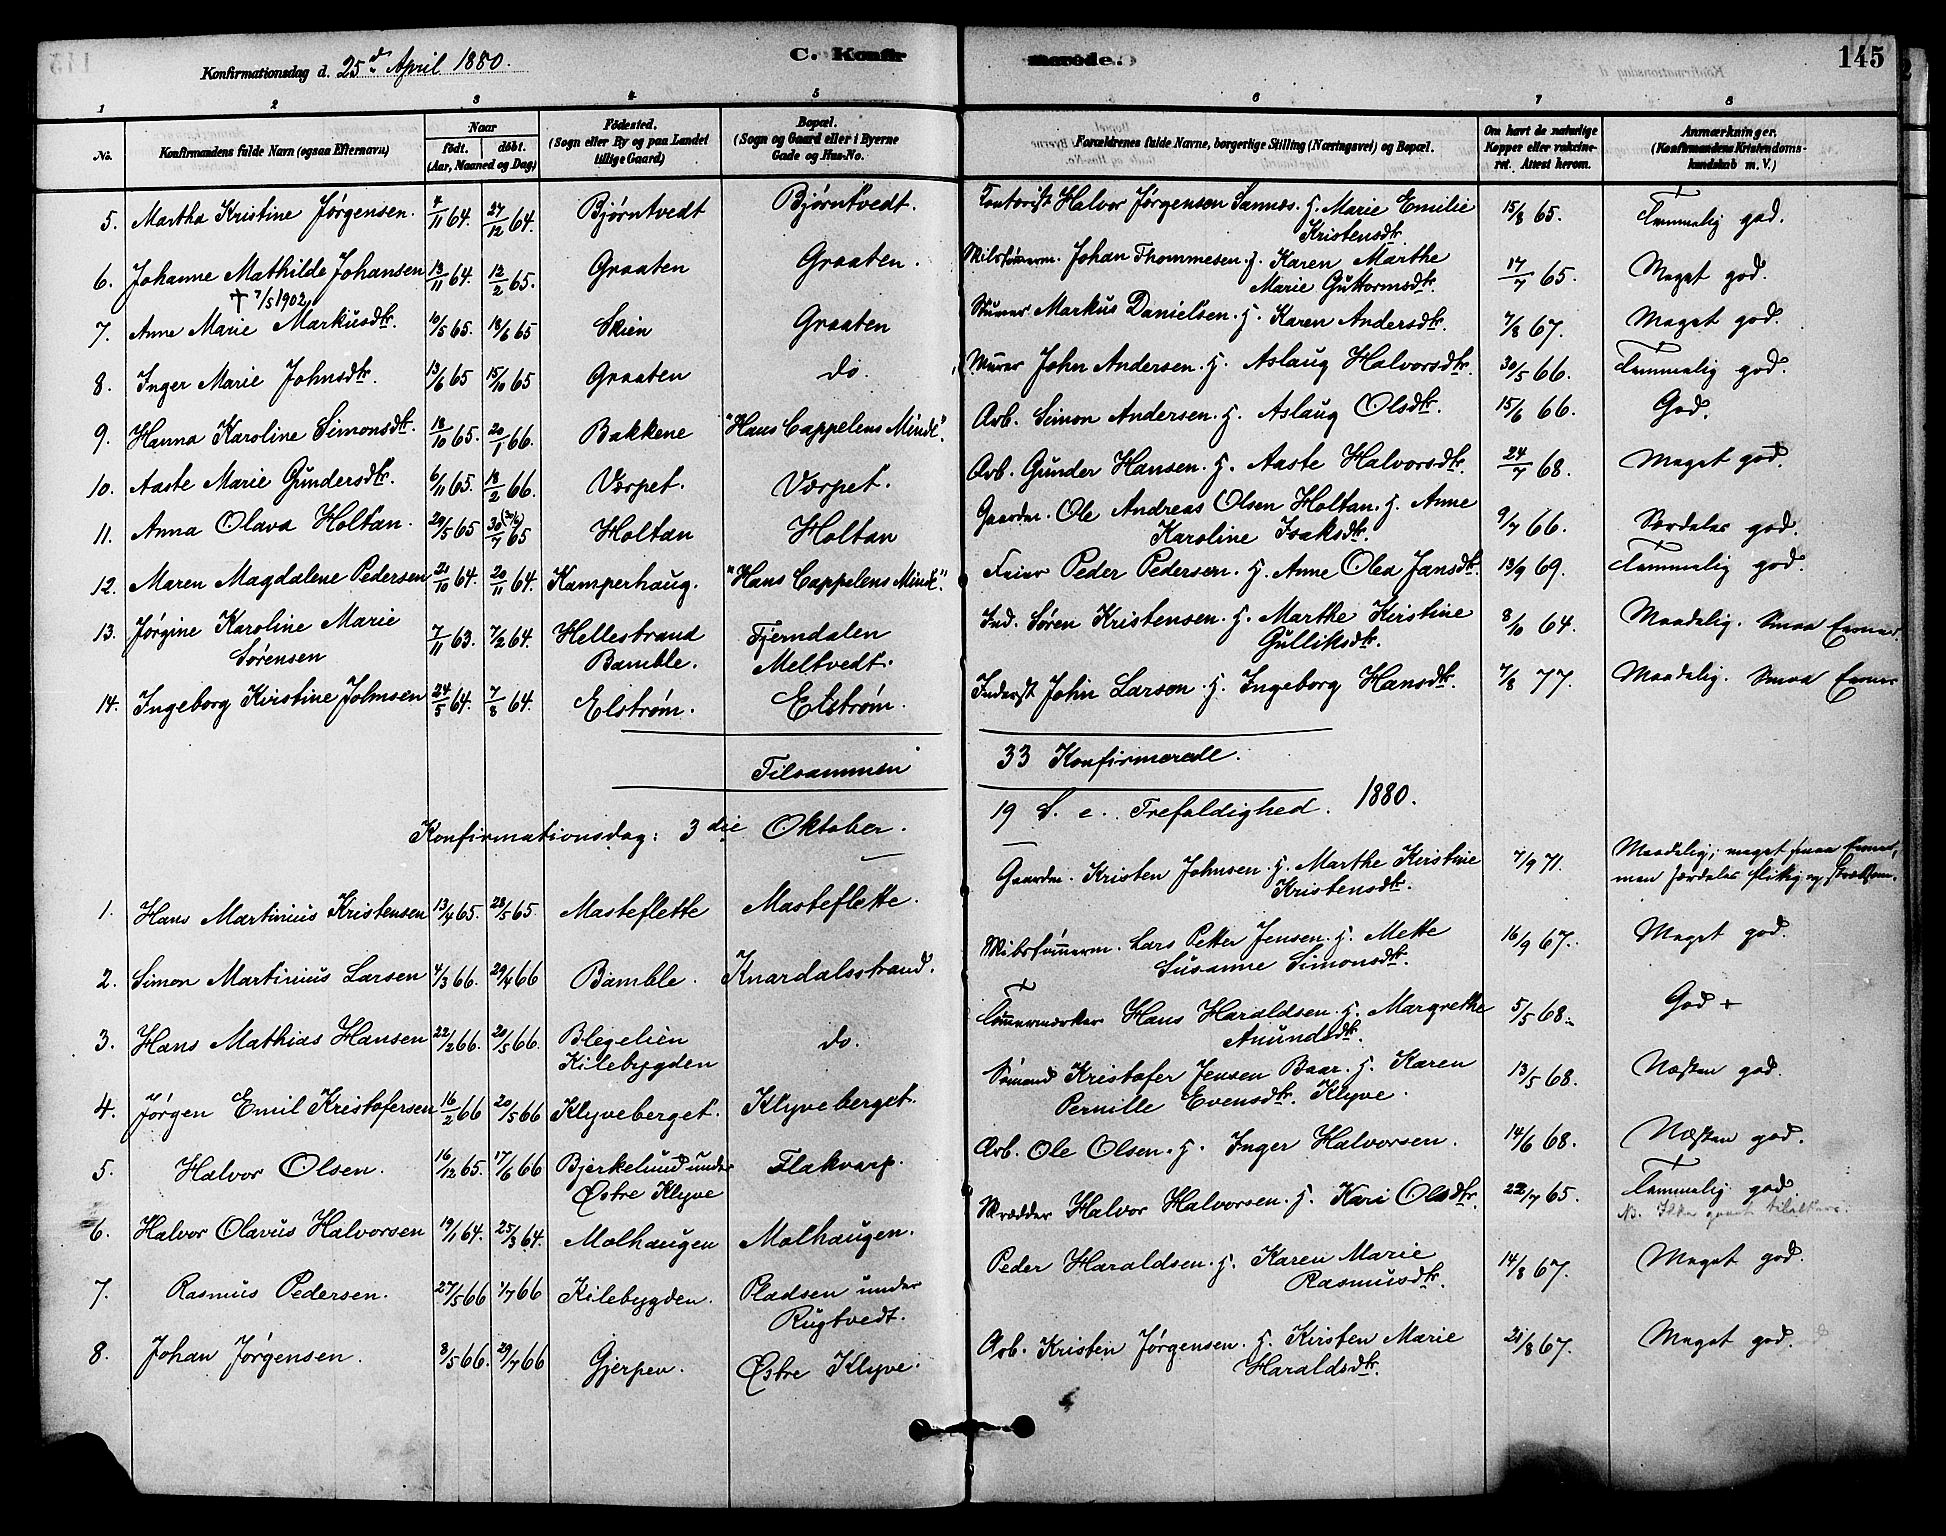 Konfirmationsdag d. 25de April 1880.
C. Konfirmerede.
145
1 2 3 4 5 6 7 8
No.
Konfirmandens fulde Navn (ogsaa Efternavn)
Naar
født. døbt.
(Aar, Maaned og Dag)
Fødested.
(Sogn eller By og paa Landet
tillige Gaard)
Bopæl.
(Sogn og Gaard eller i Byerne
Gade og Hus-No.
Forældrenes fulde Navne, borgerlige Stilling (Næringsvei) og Bopæl.
Om havt de naturlige
Kopper eller vakcine-
ret. Attest herom.
Anmærkninger.
(Konfirmandens Kristendoms-
kundskab m. V.)
5. Martha Kristine Jørgensen. 4/11 64. 27/12 64. Bjørntvedt Bjørntvedt. Kontorist Halvor Jørgensen Sannæs. H. Marie Emilie 15/8 65. Temmelig god.
Kristensdtr.
6. Johanne Mathilde Johansen 13/11 64. 12/2 65. Graaten Graaten. Johan Thommesen. H. Karen Marthe 17/7 65. Meget god.
† 7/5 1902 Marie Guttormsdtr.
7. Anne Marie Markusdtr. 10/5 65. 18/6 65 Skien Graaten Stuer Markus Danielsen. H. Karen Andersdtr. 7/8 67. Meget god.
8. Inger Marie Johnsdtr. 13/6 65 15/10 65 Graaten do. Murer John Andersen. H. Aslaug Halvorsdtr. 30/5 66. Temmelig god.
9. Hanna Karoline Simonsdtr. 18/10 65. 20/1 66. Bakkene "Hans Cappelens Minde". Arb. Simon Andersen. H. Aslaug Olsdtr. 15/6 66. God.
10. Aaste Marie Gundersdtr. 6/11 65. 18/2 66. Værpet. Værpet. Arb. Gunder Hansen. H. Aaste Halvorsdtr. 24/7 68. Meget god.
11. Anna Olava Holtan. 29/5 65 30/7 65 Holtan Holtan Gaardm. Ole Andreas Olsen Holtan. H. Anne 9/7 66. Særdeles god.
Karoline Isaksdtr.
12. Maren Magdalene Pedersen 2/10 64. 20/11 64. Kamperhaug. "Hans Cappelens Minde". Feier Peder Pedersen. H. Anne Olea Jansdtr. 13/9 69. Temmelig god.
13. Jørgine Karoline Marie 7/11 63. 7/2 64. Hellestrand Fjerndalen Ind. Søren Kristensen. H. Marthe Kristine 8/10 64. Maadelig. Smaa Evner.
Sørensen Bamble. Meltvedt. Gulliksdtr.
14. Ingeborg Kirstine Johnsen 24/5 64. 7/8 64. Elstrøm. Elstrøm. Inderst John Larsen. H. Ingeborg Hansdtr. 7/8 77. Maadelig. Smaa Evner
Tilsammen 33 Konfirmerede.
Konfirmationsdag: 3die Oktober. 19 S. e. Trefoldighed. 1880.
1. Hans Martinius Kristensen 13/4 65. 28/5 65. Masteflette Masteflette. Gaardm. Kristen Johnsen. H. Marthe Kirstine 7/9 71. Maadelig; meget smaa Evner,
Kristensdtr. men særdeles flittig og stræbsom.
2. Simon Martinius Larsen 4/3 66. 29/4 66 Bamble. Knardalsstrand. Lars Petter Jensen. H. Mette 16/9 67. Meget god.
Susanne Simonsdtr.
3. Hans Mathias Hansen 22/2 66. 20/5 66. Blegelien do. Tømmermærker Hans Haraldsen. H. Margrethe 5/5 68. God +
Kilebygden Anundsdtr.
4. Jørgen Emil Kristofersen 16/2 66 20/5 66 Klyveberget. Klyveberget. Sømand Kristofer Jensen Baar. H. Karen 13/5 68. Næsten god.
Pernille Evensdtr. Klyve.
5. Halvor Olsen. 16/12 65. 17/6 66 Bjerkelund under Flakvarp. Arb. Ole Olsen. H. Inger Halvorsen. 14/6 68. Næsten god.
Østre Klyve
6. Halvor Olavus Halvorsen 19/1 64. 25/3 64. Molhaugen Molhaugen. Skrædder Halvor Halvorsen. H. Kari Olsdtr. 22/7 65. Temmelig god
NB. Ikke
7. Rasmus Pedersen. 27/5 66 1/7 66 Kilebygden. Pladsen under Peder Haraldsen. H. Karen Marie 14/8 67. Meget god.
Rugtvedt. Rasmusdtr.
8. Johan Jørgensen. 8/5 66. 29/7 66 Gjerpen. Østre Klyve. Arb. Kristen Jørgensen. H. Kirsten Marie 21/8 67. Meget god.
Haraldsdtr.